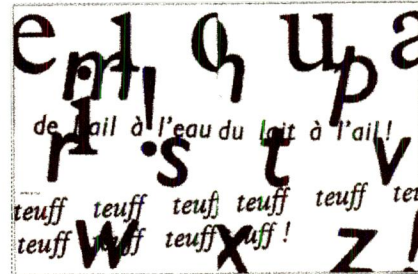 e l q u a
m ! h p
de l'ail à l'eau du lait à l'ail !
r l s t v
teuff teuff teuff teuff teuff
teuff teuff teuff teuff !
w x z !